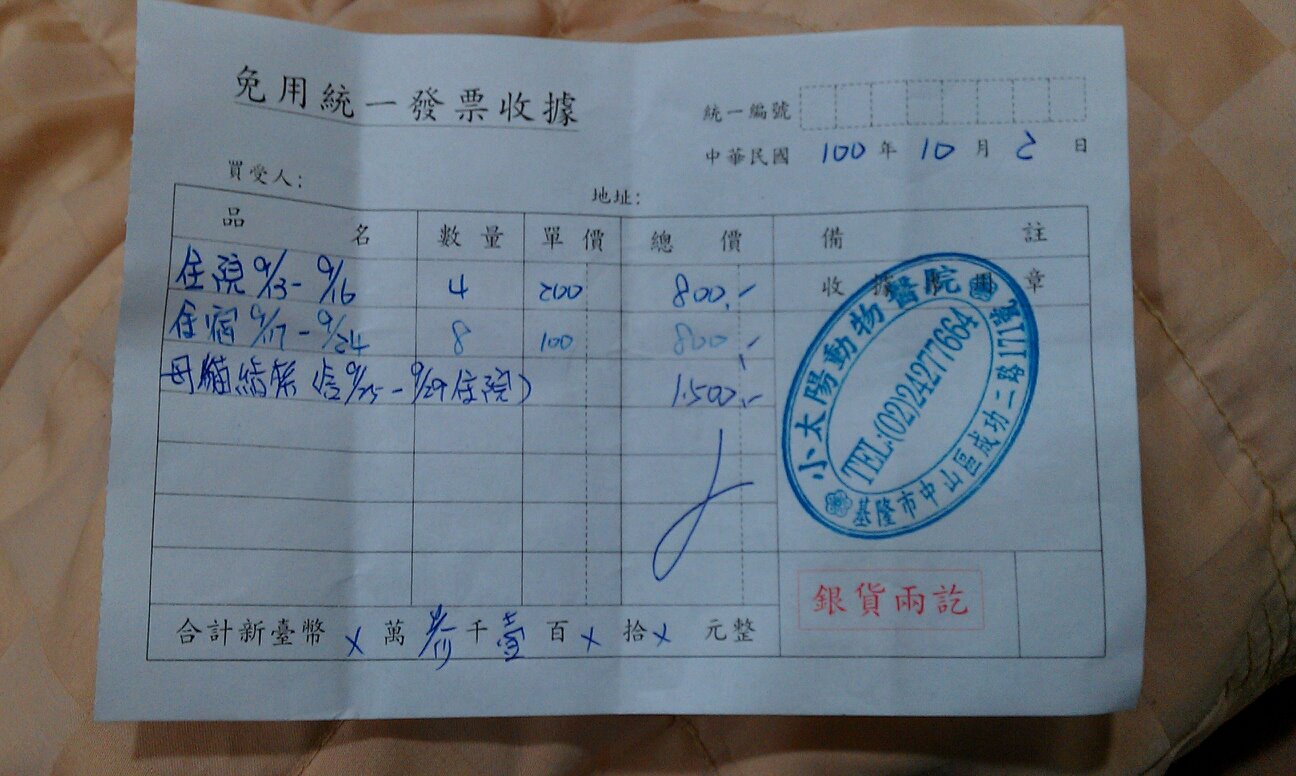 免用統一發票收據
統一編號
中華民國 100 年 10 月 2 日
買受人:
地址:
品名 數量 單價 總價 備註
住院 9/13 - 9/16 4 200 800.-
收據專用章
住宿 9/17 - 9/24 8 100 800.-
母貓結紮(含 9/25 - 9/29 住院) 1.500.-
小太陽動物醫院
TEL:(02)24277664
基隆市中山區成功二路171號
銀貨兩訖
合計新臺幣 x 萬 參 千 壹 百 x 拾 x 元整